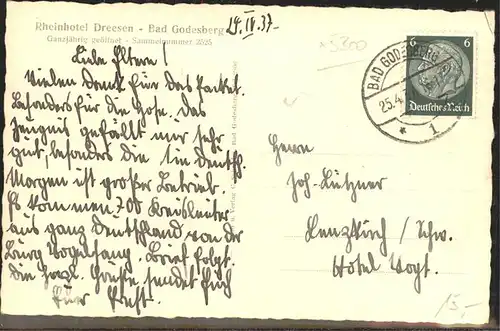 Rheinhotel Dreesen - Bad Godesberg
Ganzjährig geöffnet - Sammelnummer 2525
24.IV.37.
Liebe Eltern!
Vielen Dank für das Packet.
Besonders für die Hose. Das
Zeugnis gefällt mir sehr
gut, besonders die 1 in Deutsch.
Morgen ist großer Betrieb.
Es kommen 700 Kreisleiter
aus ganz Deutschland von der
Burg Vogelsang. Brief folgt.
Die herzl. Grüße, sendet Euch
Euer Ernst.
BAD GODESBERG
25.4.
* 1
6
Deutsches Reich
Herrn
Joh. Lützner
Lenzkirch / Schw.
Hotel Vogt.
15,-